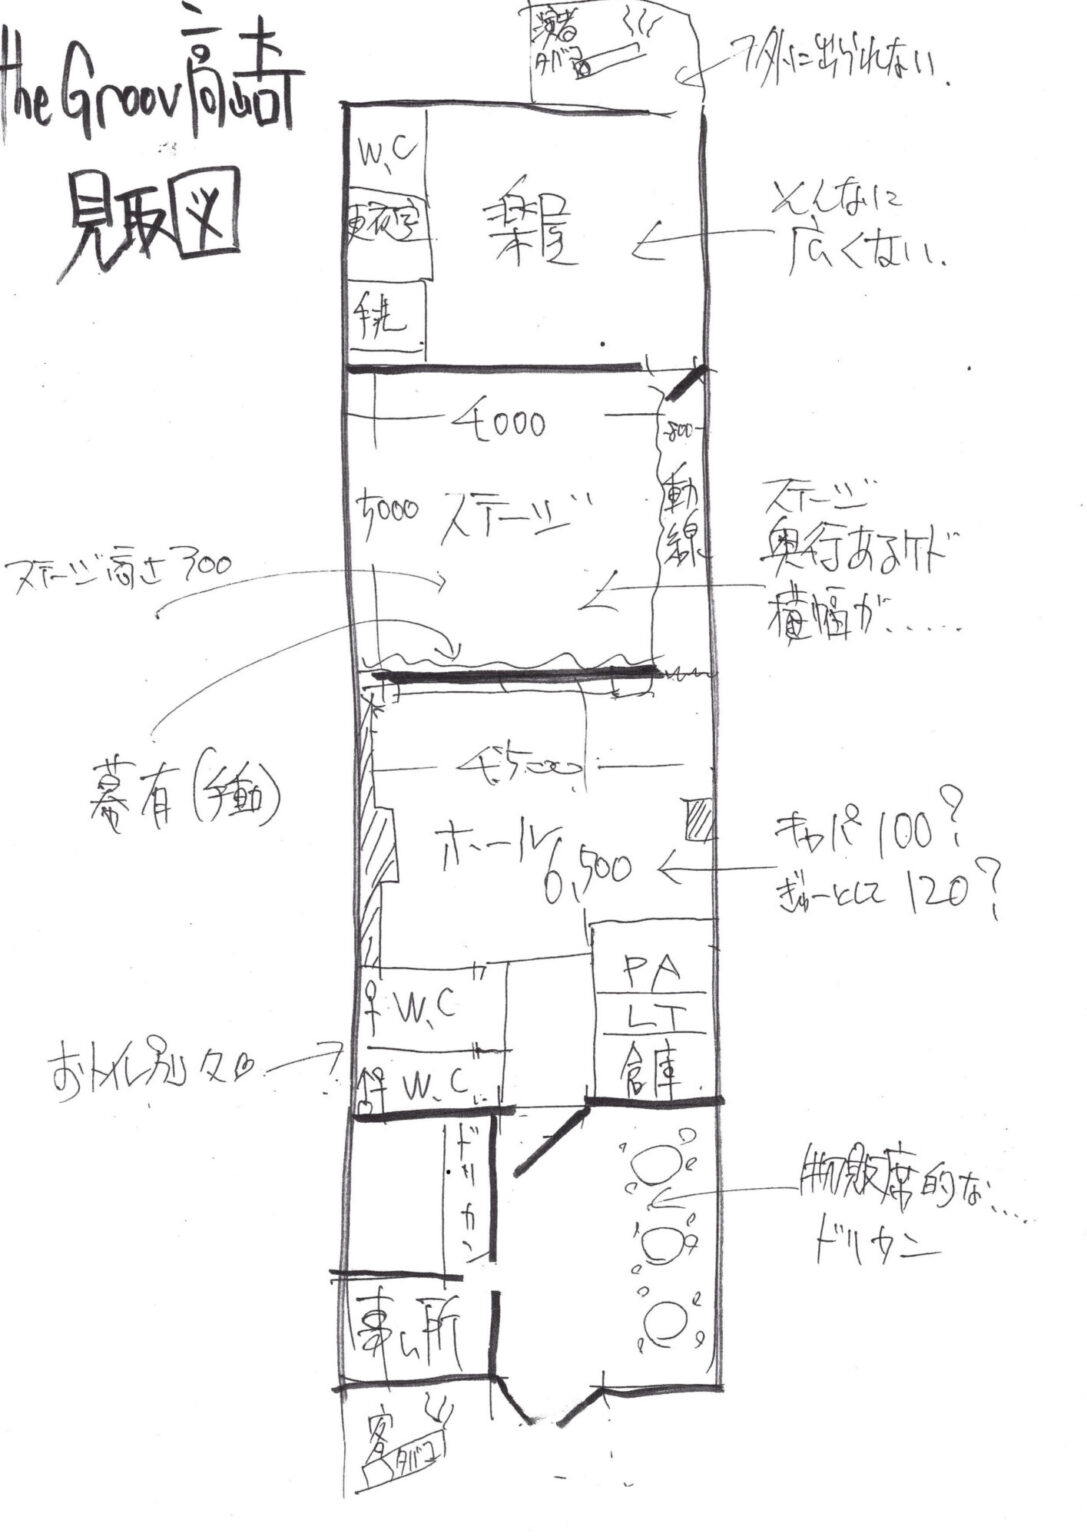 the Groov高崎
見取図
演者
タバコ
外に出られない.
W.C
更衣室
手洗
楽屋
そんなに
広くない.
4000
800
5000
ステージ
動線
ステージ高さ300
ステージ
奥行あるケド
横幅が......
幕有(手動)
ホール
6,500
キャパ100?
ぎゅーとして120?
PA
LT
倉庫
W.C
W.C.
おトイレ別々
ドリカン
物販席的な....
ドリカン
事ム所
客
タバコ